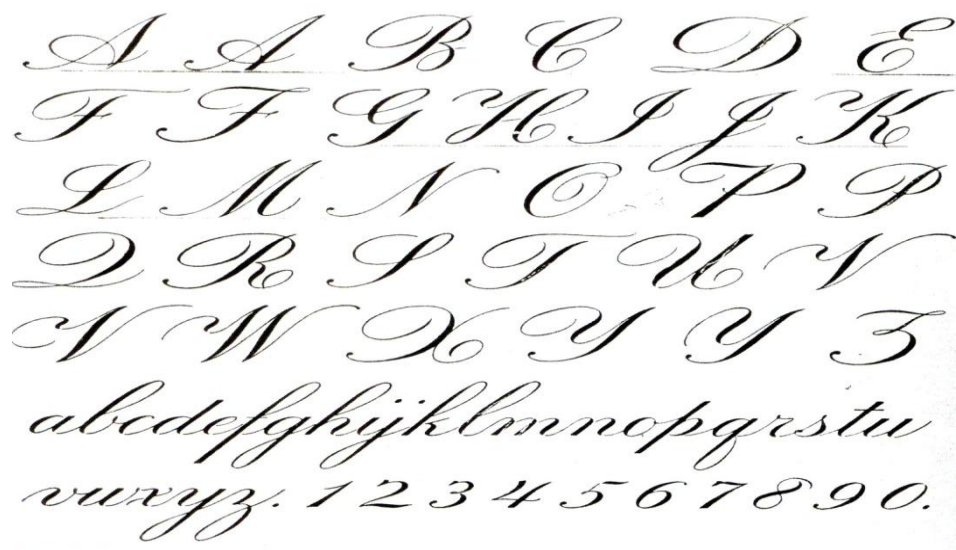 A A B C D E
F F G H I J K
L M N O P P
Q R S T U V
V W X Y Y Z
abcdefghijklmnopqrstu
vwxyz. 1 2 3 4 5 6 7 8 9 0.